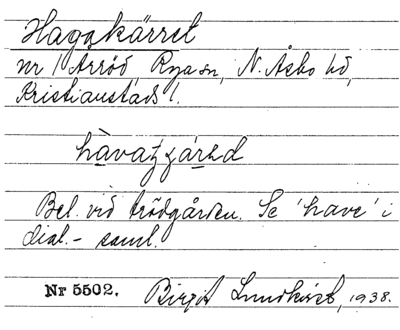 Hagakärret
nr 1 Årröd, Rya sn, N. Åsbo hd,
Kristianstads l.
Bel. vid trädgården. Se 'have' i
dial.- saml.
Nr 5502. Birgit Lundkvist, 1938.